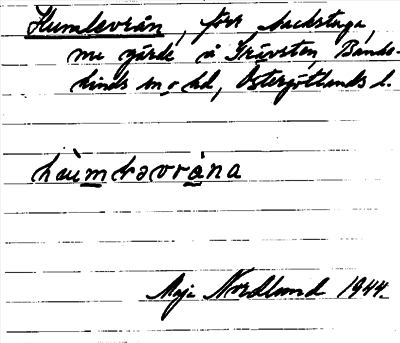 Humlevrån, förr backstuga,
nu gärde å Grävsten, Bands-
kinds sn o hd, Östergötlands l.
hùmləvråna
Maj Nordlund 1944.